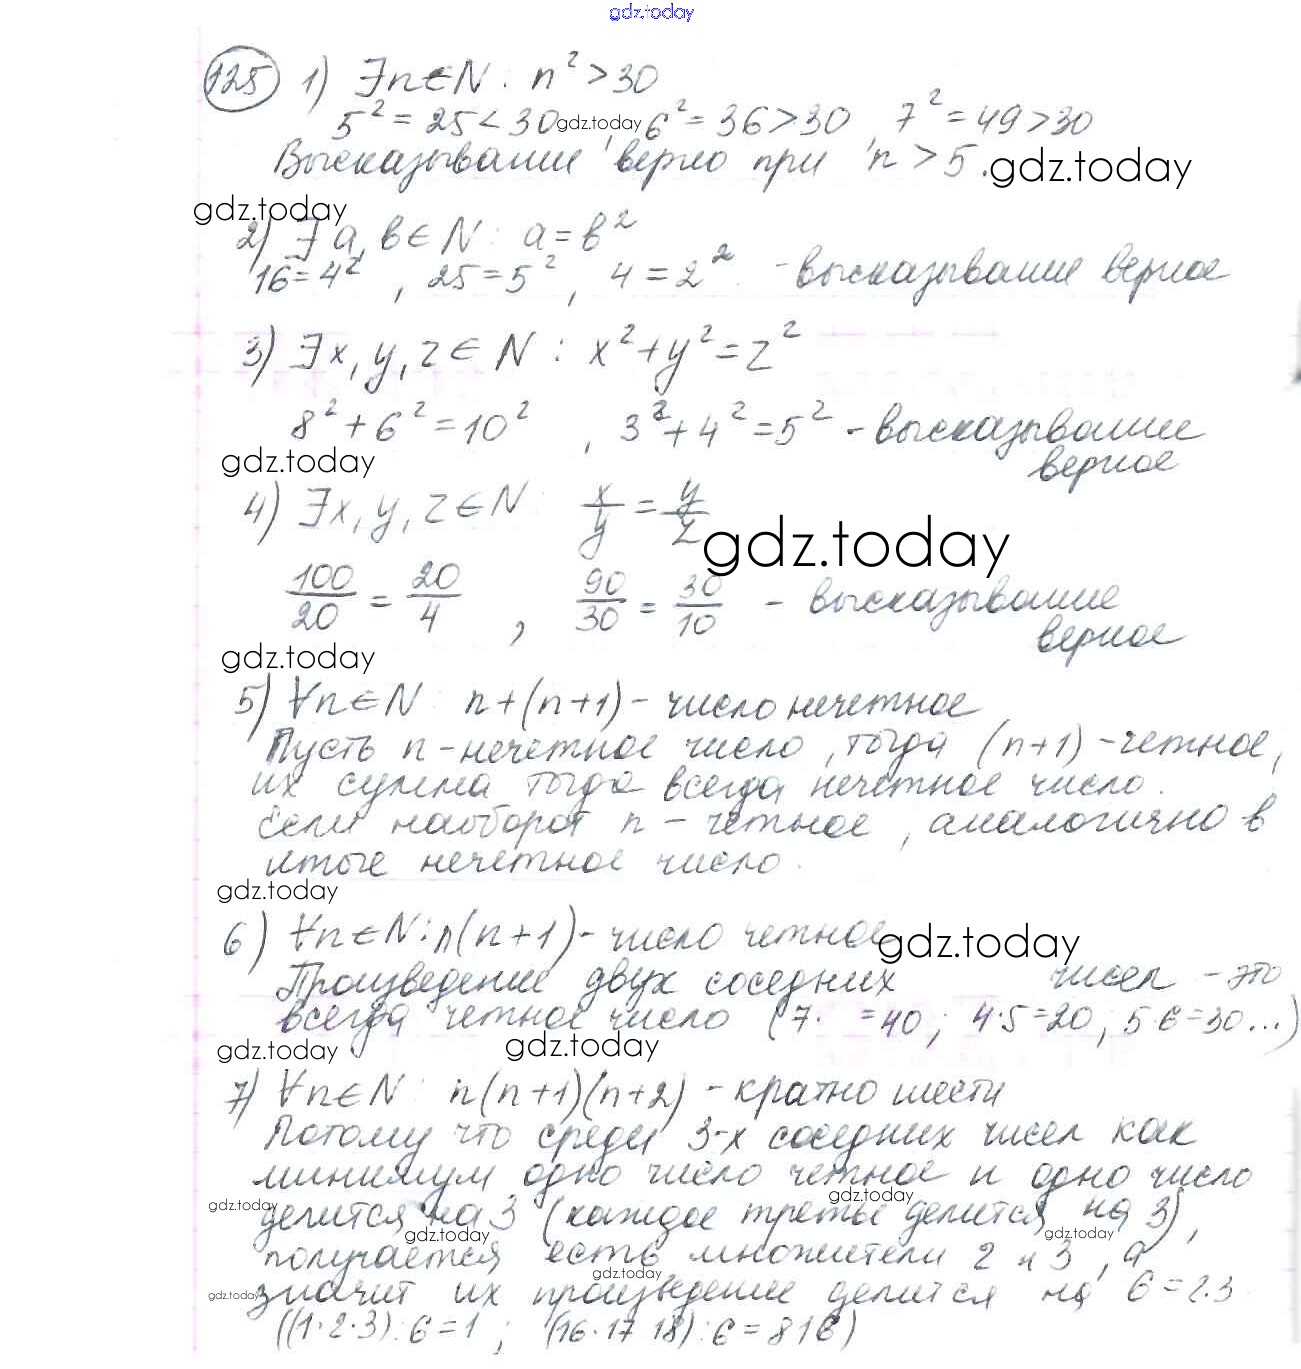 gdz.today
125 1) ∃n∈N: n² > 30
5² = 25 < 30, gdz.today 6² = 36 > 30, 7² = 49 > 30
Высказывание верно при n > 5. gdz.today
gdz.today
2) ∃ a, b ∈ N: a = b²
16 = 4², 25 = 5², 4 = 2² - высказывание верное
3) ∃x, y, z ∈ N: x² + y² = z²
8² + 6² = 10², 3² + 4² = 5² - высказывание
верное
gdz.today
4) ∃x, y, z ∈ N: x/y = y/z
gdz.today
100/20 = 20/4, 90/30 = 30/10 - высказывание
верное
gdz.today
5) ∀n∈N: n+(n+1) - число нечетное
Пусть n - нечетное число, тогда (n+1) - четное,
их сумма тогда всегда нечетное число.
Если наоборот n - четное, аналогично в
итоге нечетное число.
gdz.today
6) ∀n∈N: n(n+1) - число четное gdz.today
Произведение двух соседних чисел - это
всегда четное число (7· =40; 4·5=20, 5·6=30...)
gdz.today gdz.today
7) ∀n∈N: n(n+1)(n+2) - кратно шести
Потому что среди 3-х соседних чисел как
минимум одно число четное и одно число
gdz.today gdz.today
делится на 3 (каждое третье делится на 3),
gdz.today gdz.today
получается есть множители 2 и 3, а
gdz.today gdz.today
значит их произведение делится на 6 = 2·3
((1·2·3):6=1; (16·17·18):6=816)